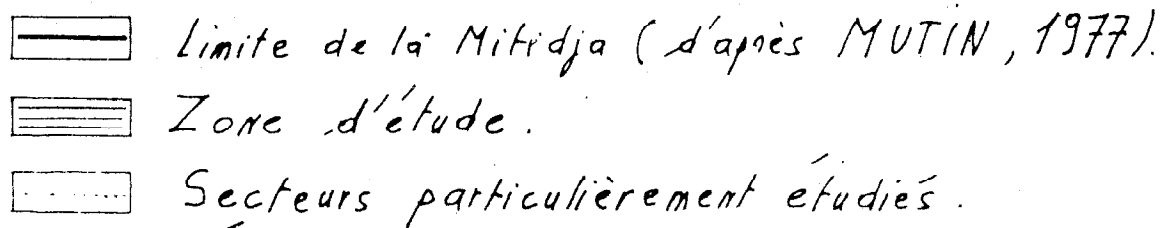 Limite de la Mitidja (d'après MUTIN, 1977).
Zone d'étude.
Secteurs particulièrement étudiés.